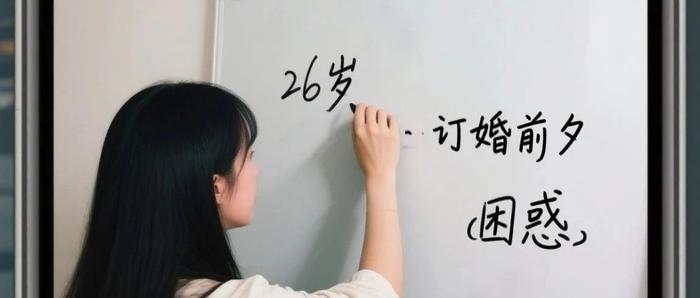 26岁
...订婚前夕
(困惑)